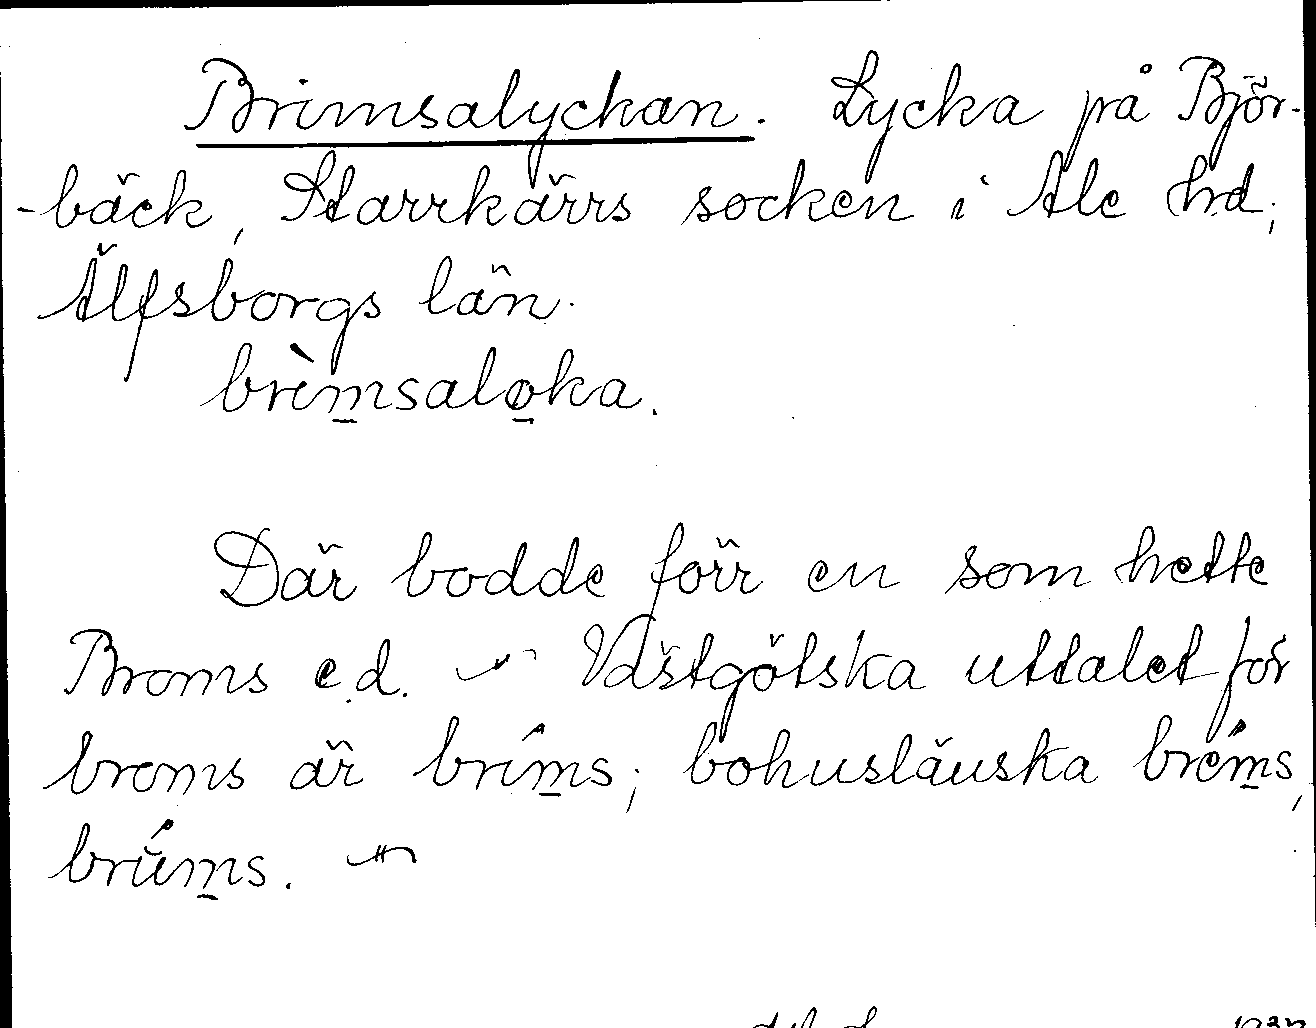 Brimsalyckan. Lycka på Björ-
-bäck, Starrkärrs socken i Ale hd,
Älfsborgs län.
brìmsaloka.
Där bodde förr en som hette
Broms e.d. Västgötska uttalet för
broms är bríms, bohuslänska bréms,
brúms.